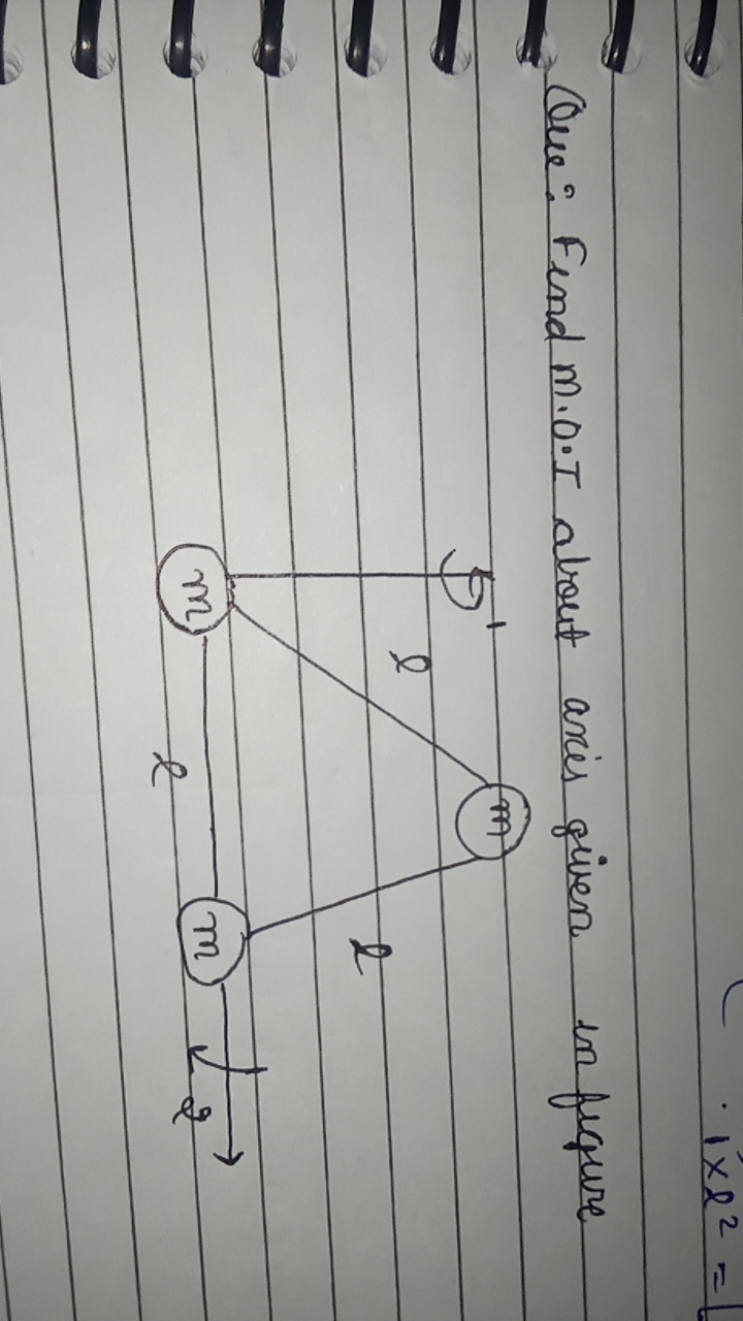 . 1×l² =
Que: Find M.O.I about axis given in figure
1
m
l
l
m
l
m
2